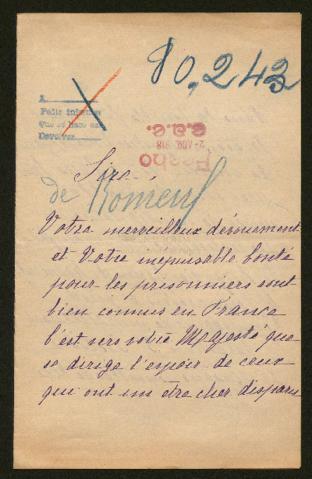 80,243
A
Pedir informe
Que se hace en
Devolver
Fecho
2 ABR. 918
Sire
de Romeuf
Votre merveilleux dévouement
et Votre inépuisable bonté
pour les prisonniers sont
bien connus en France
c'est vers votre Majesté que
se dirige l'espoir de ceux
qui ont un être cher disparu